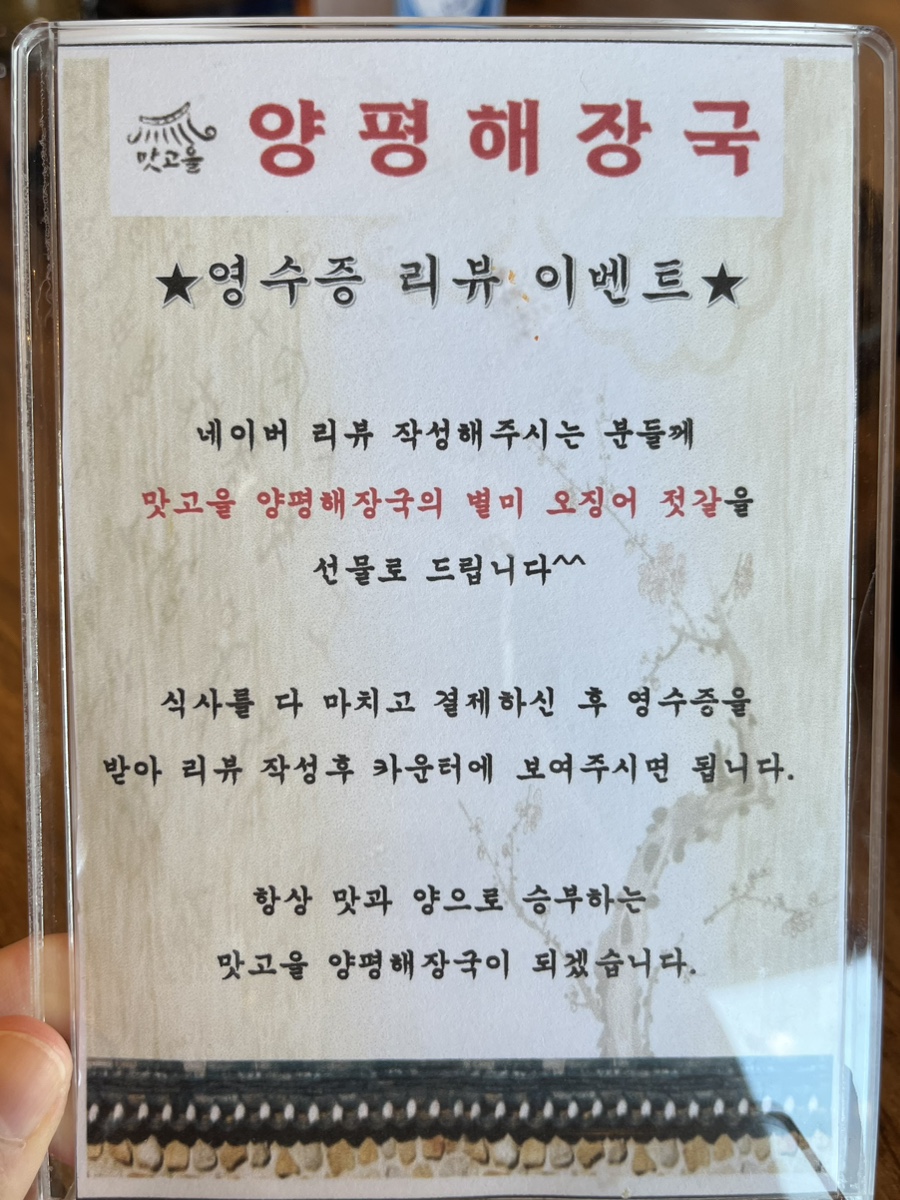 맛고을
양평해장국
★영수증 리뷰 이벤트★
네이버 리뷰 작성해주시는 분들께
맛고을 양평해장국의 별미 오징어 젓갈을
선물로 드립니다^^
식사를 다 마치고 결제하신 후 영수증을
받아 리뷰 작성후 카운터에 보여주시면 됩니다.
항상 맛과 양으로 승부하는
맛고을 양평해장국이 되겠습니다.